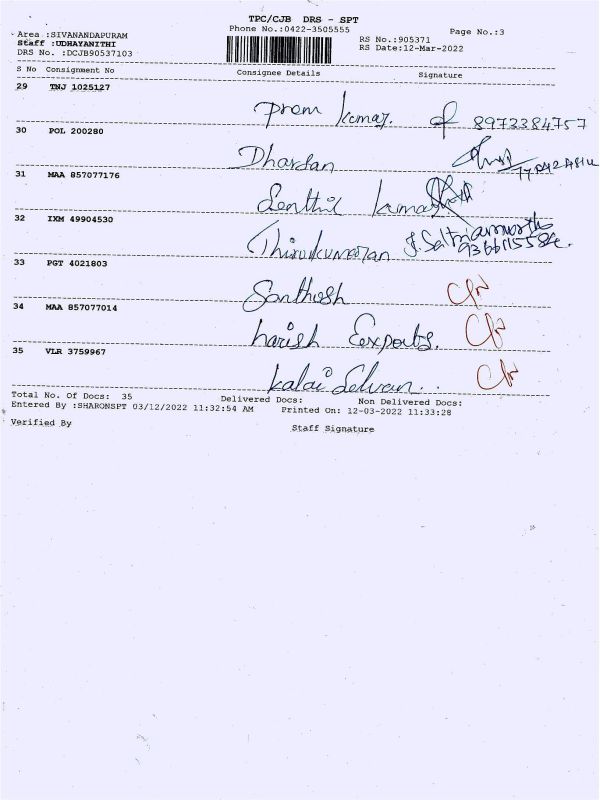 TPC/CJB DRS - SPT
Phone No.:0422-3505555
Page No.:3
Area :SIVANANDAPURAM
Staff :UDHAYANITHI
RS No.:905371
DRS No. :DCJB90537103
RS Date:12-Mar-2022
S No Consignment No Consignee Details Signature
29 TNJ 1025127
Prem Kumar. 8972384757
30 POL 200280
31 MAA 857077176
Senthil Kumar
32 IXM 49904530
Thirukumaran
33 PGT 4021803
Santhosh
34 MAA 857077014
harish Eexports.
35 VLR 3759967
Kalai Selvan..
Total No. Of Docs: 35 Delivered Docs: Non Delivered Docs:
Entered By :SHARONSPT 03/12/2022 11:32:54 AM Printed On: 12-03-2022 11:33:28
Verified By Staff Signature